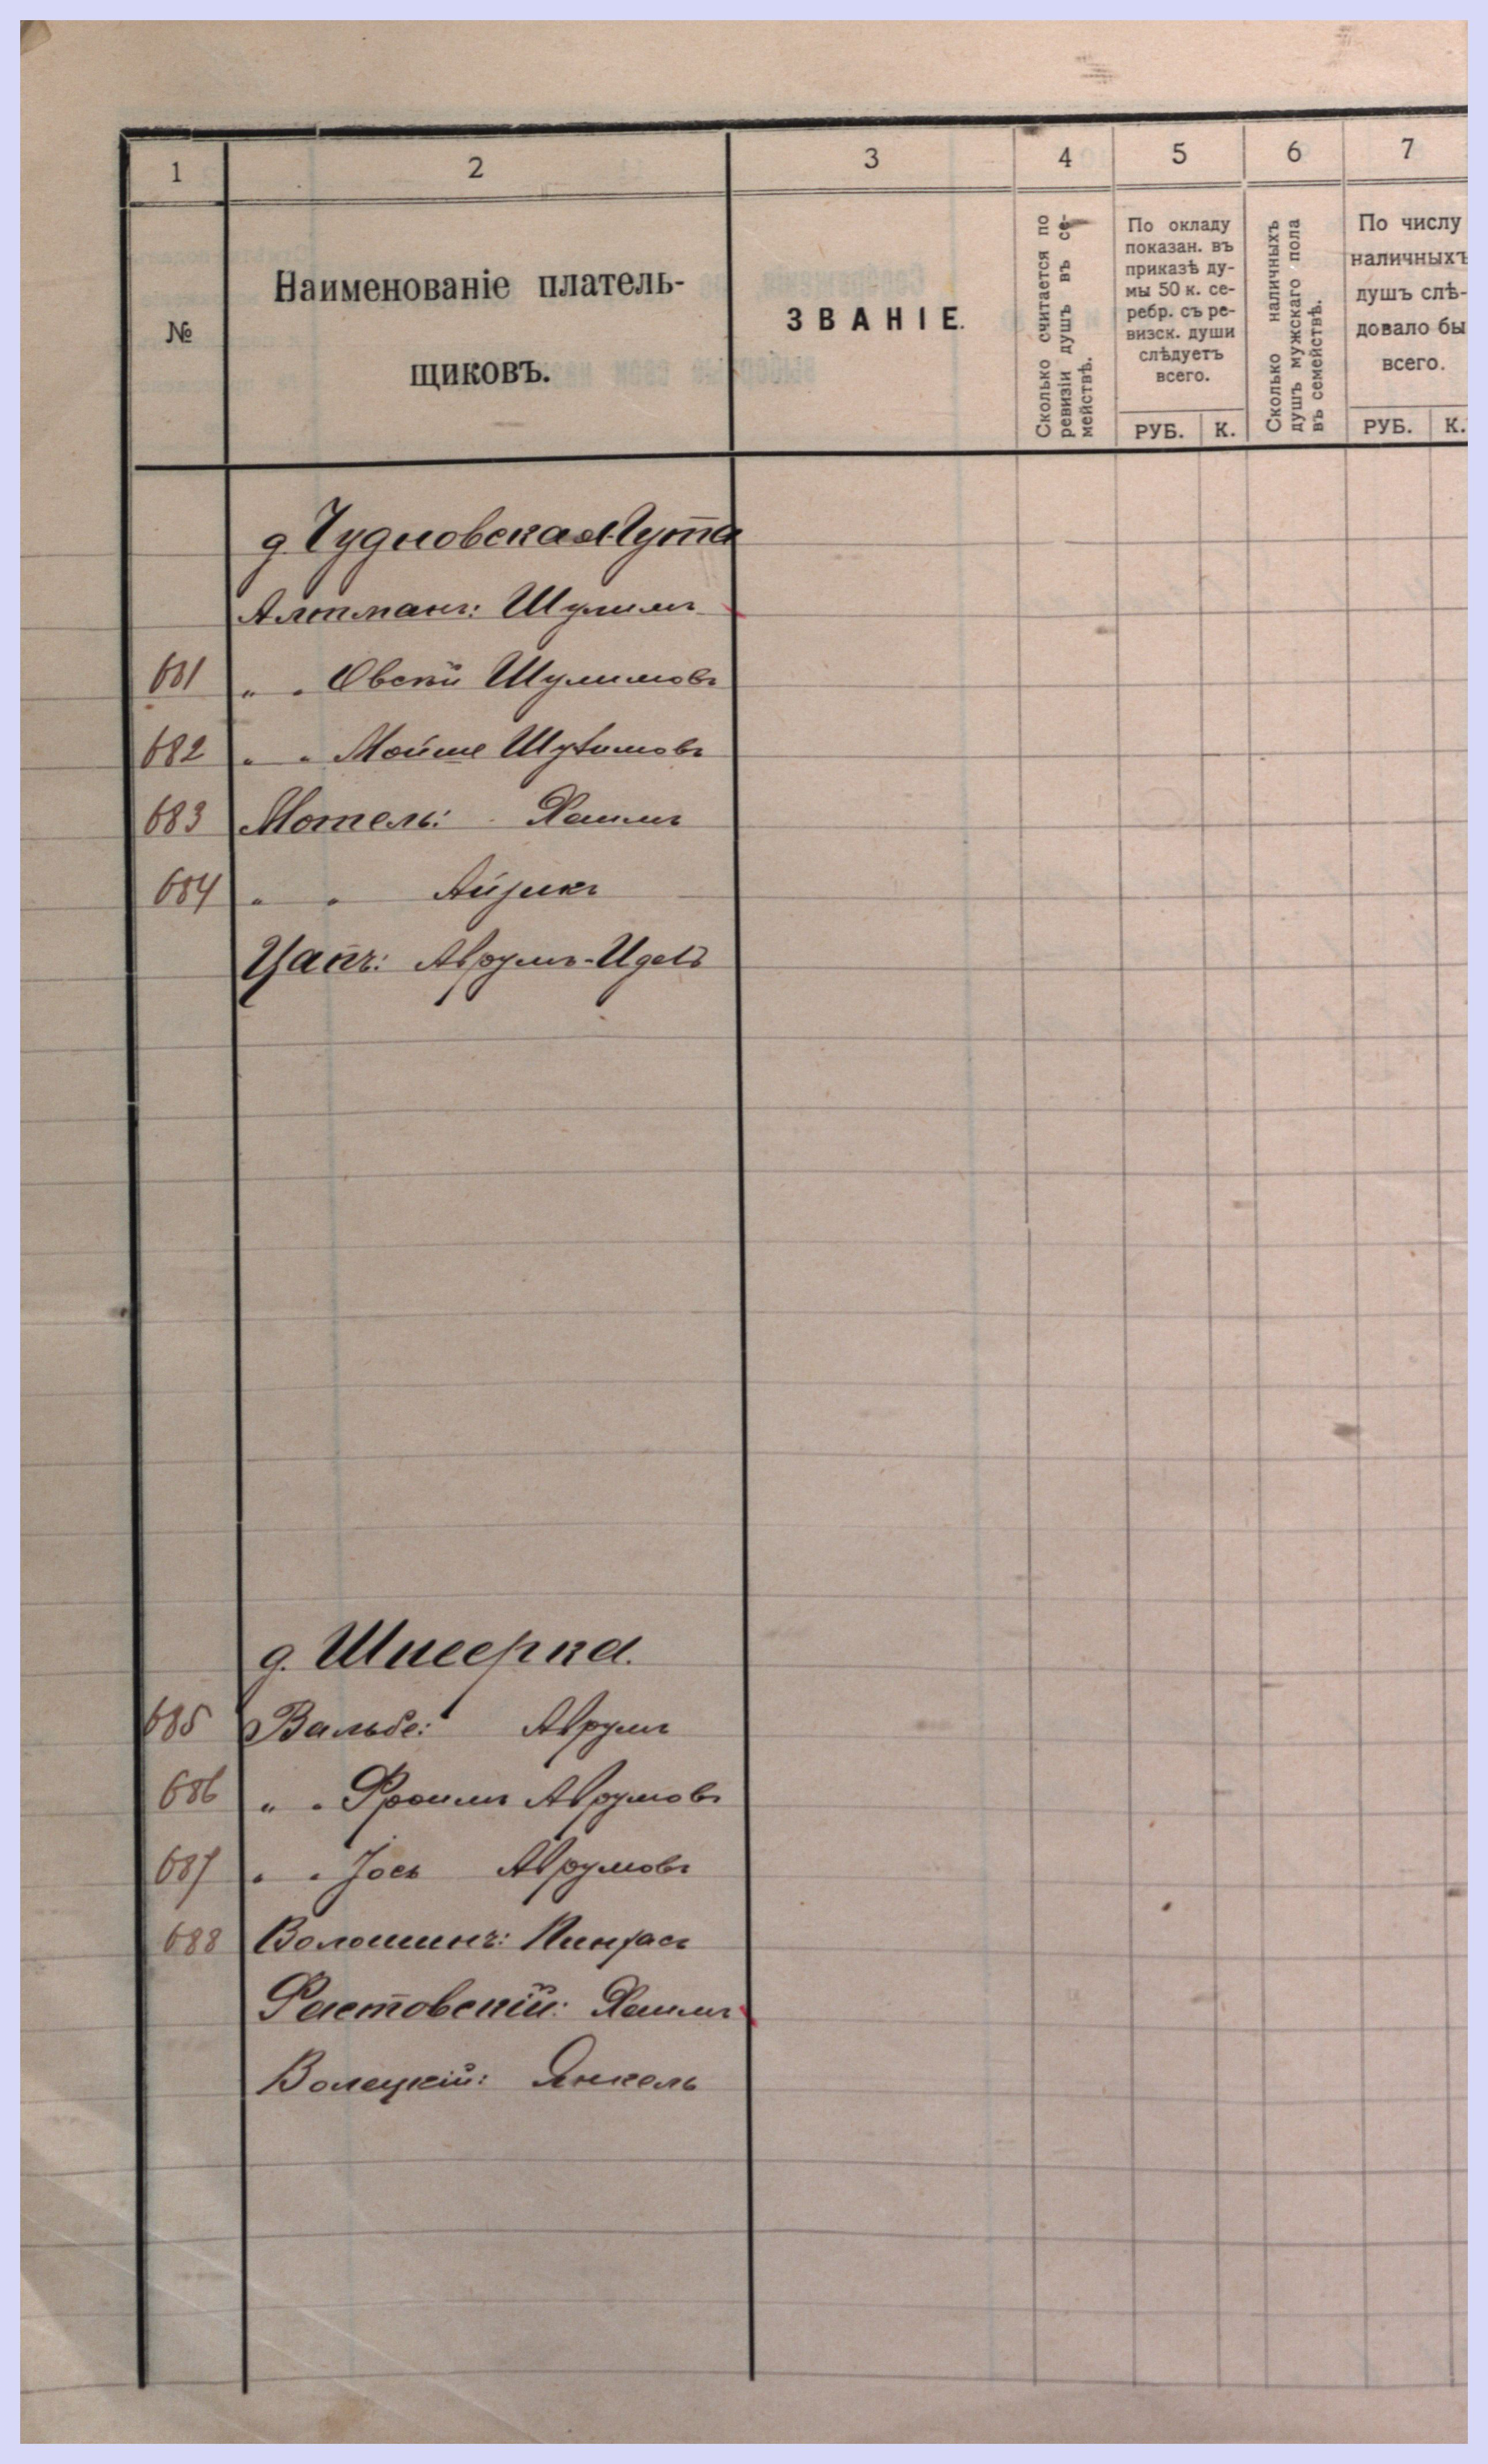 1 2 3 4 5 6 7
№
Наименованіе платель-
щиковъ.
ЗВАНІЕ.
Сколько считается по
ревизіи душъ въ се-
мействѣ.
По окладу
показан. въ
приказѣ ду-
мы 50 к. се-
ребр. съ ре-
визск. души
слѣдуетъ
всего.
РУБ. К.
Сколько наличныхъ
душъ мужскаго пола
въ семействѣ.
По числу
наличныхъ
душъ слѣ-
довало бы
всего.
РУБ. К.
д. Чудновская-Гута
Алтманъ: Шулимъ
681 „ „ Овсій Шулимовъ
682 „ „ Мойше Шулимовъ
683 Мотель: Хаимъ
684 „ „ Айзикъ
Цапъ: Аврумъ-Идель
д. Шнеерка.
685 Вальбе: Аврумъ
686 „ „ Фроимъ Аврумовъ
687 „ „ Іось Аврумовъ
688 Волошинъ: Пинхасъ
Фастовскій: Хаимъ
Волецкій: Янкель